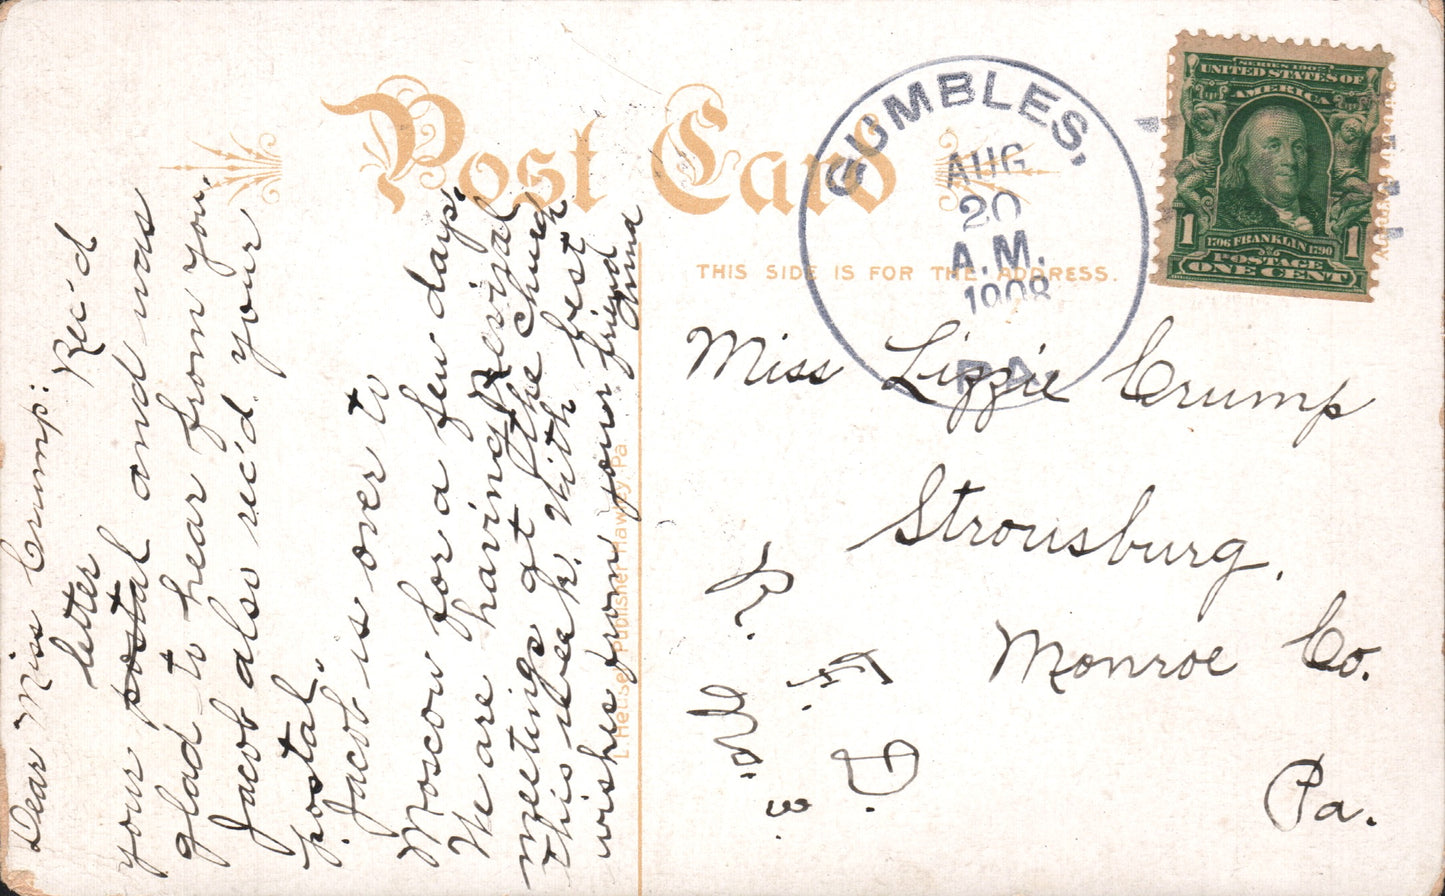 Post Card
THIS SIDE IS FOR THE ADDRESS.
GUMBLES,
AUG
20
A.M.
1908
PA.
SERIES 1902
UNITED STATES OF
AMERICA
1706 FRANKLIN 1790
POSTAGE
1 ONE CENT 1
Dear Miss Crump:
Rec'd
letter
your postal and was
glad to hear from you.
Jacob also rec'd your
postal.
Jacob is over to
Moscow for a few days.
We are having Revival
meetings at the Church
this week. With best
wishes from your friend
Anna
L Heuse, Publisher Hawley, Pa
Miss Lizzie Crump
Strousburg.
Monroe Co.
Pa.
R. F. D.
No. 3